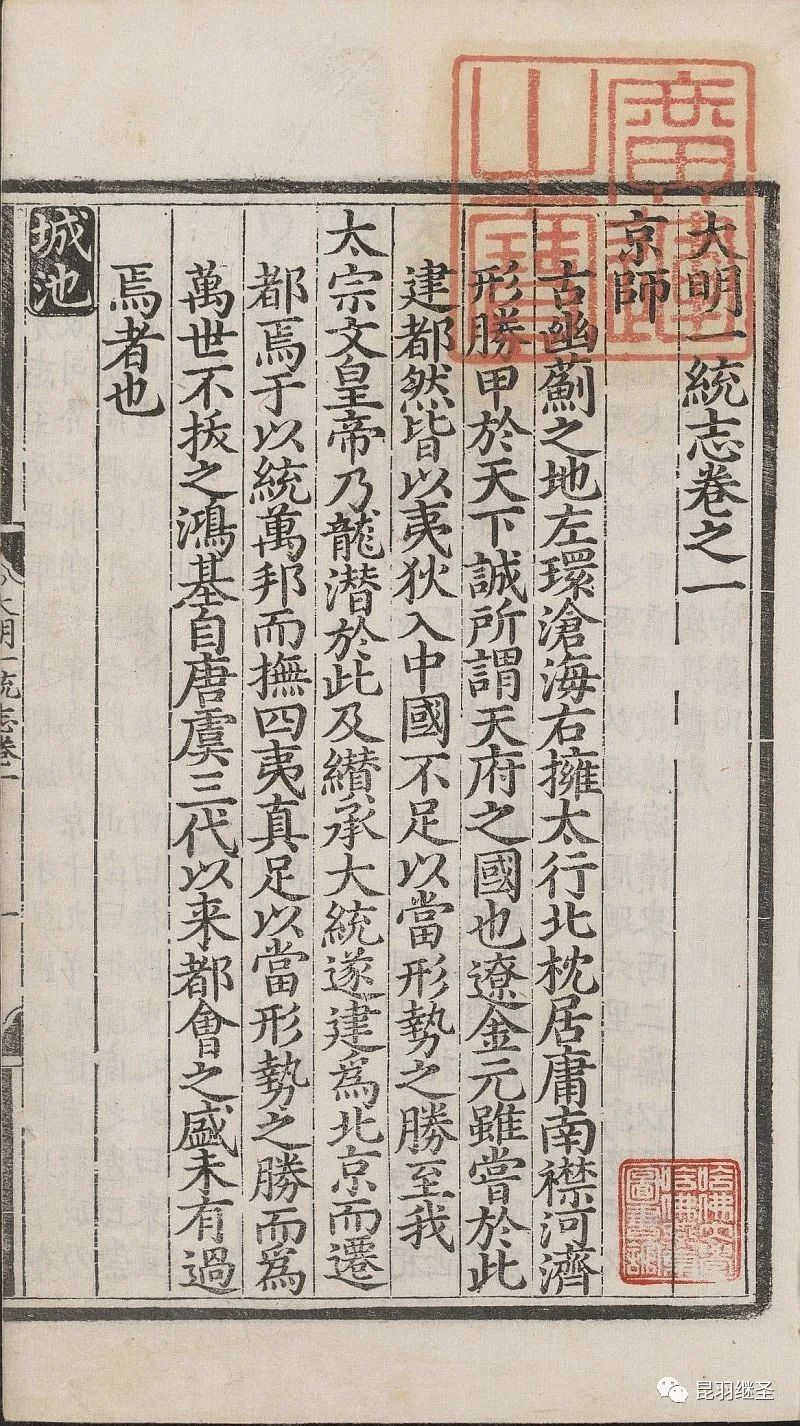 大明一統志卷之一
京師
古幽薊之地左環滄海右擁太行北枕居庸南襟河濟
形勝甲於天下誠所謂天府之國也遼金元雖嘗於此
建都然皆以夷狄入中國不足以當形勢之勝至我
太宗文皇帝乃龍潛於此及纘承大統遂建爲北京而遷
都焉于以統萬邦而撫四夷真足以當形勢之勝而爲
萬世不拔之鴻基自唐虞三代以来都會之盛未有過
焉者也
城池
大明一統志卷一
一
廣運之寶
昆羽继圣